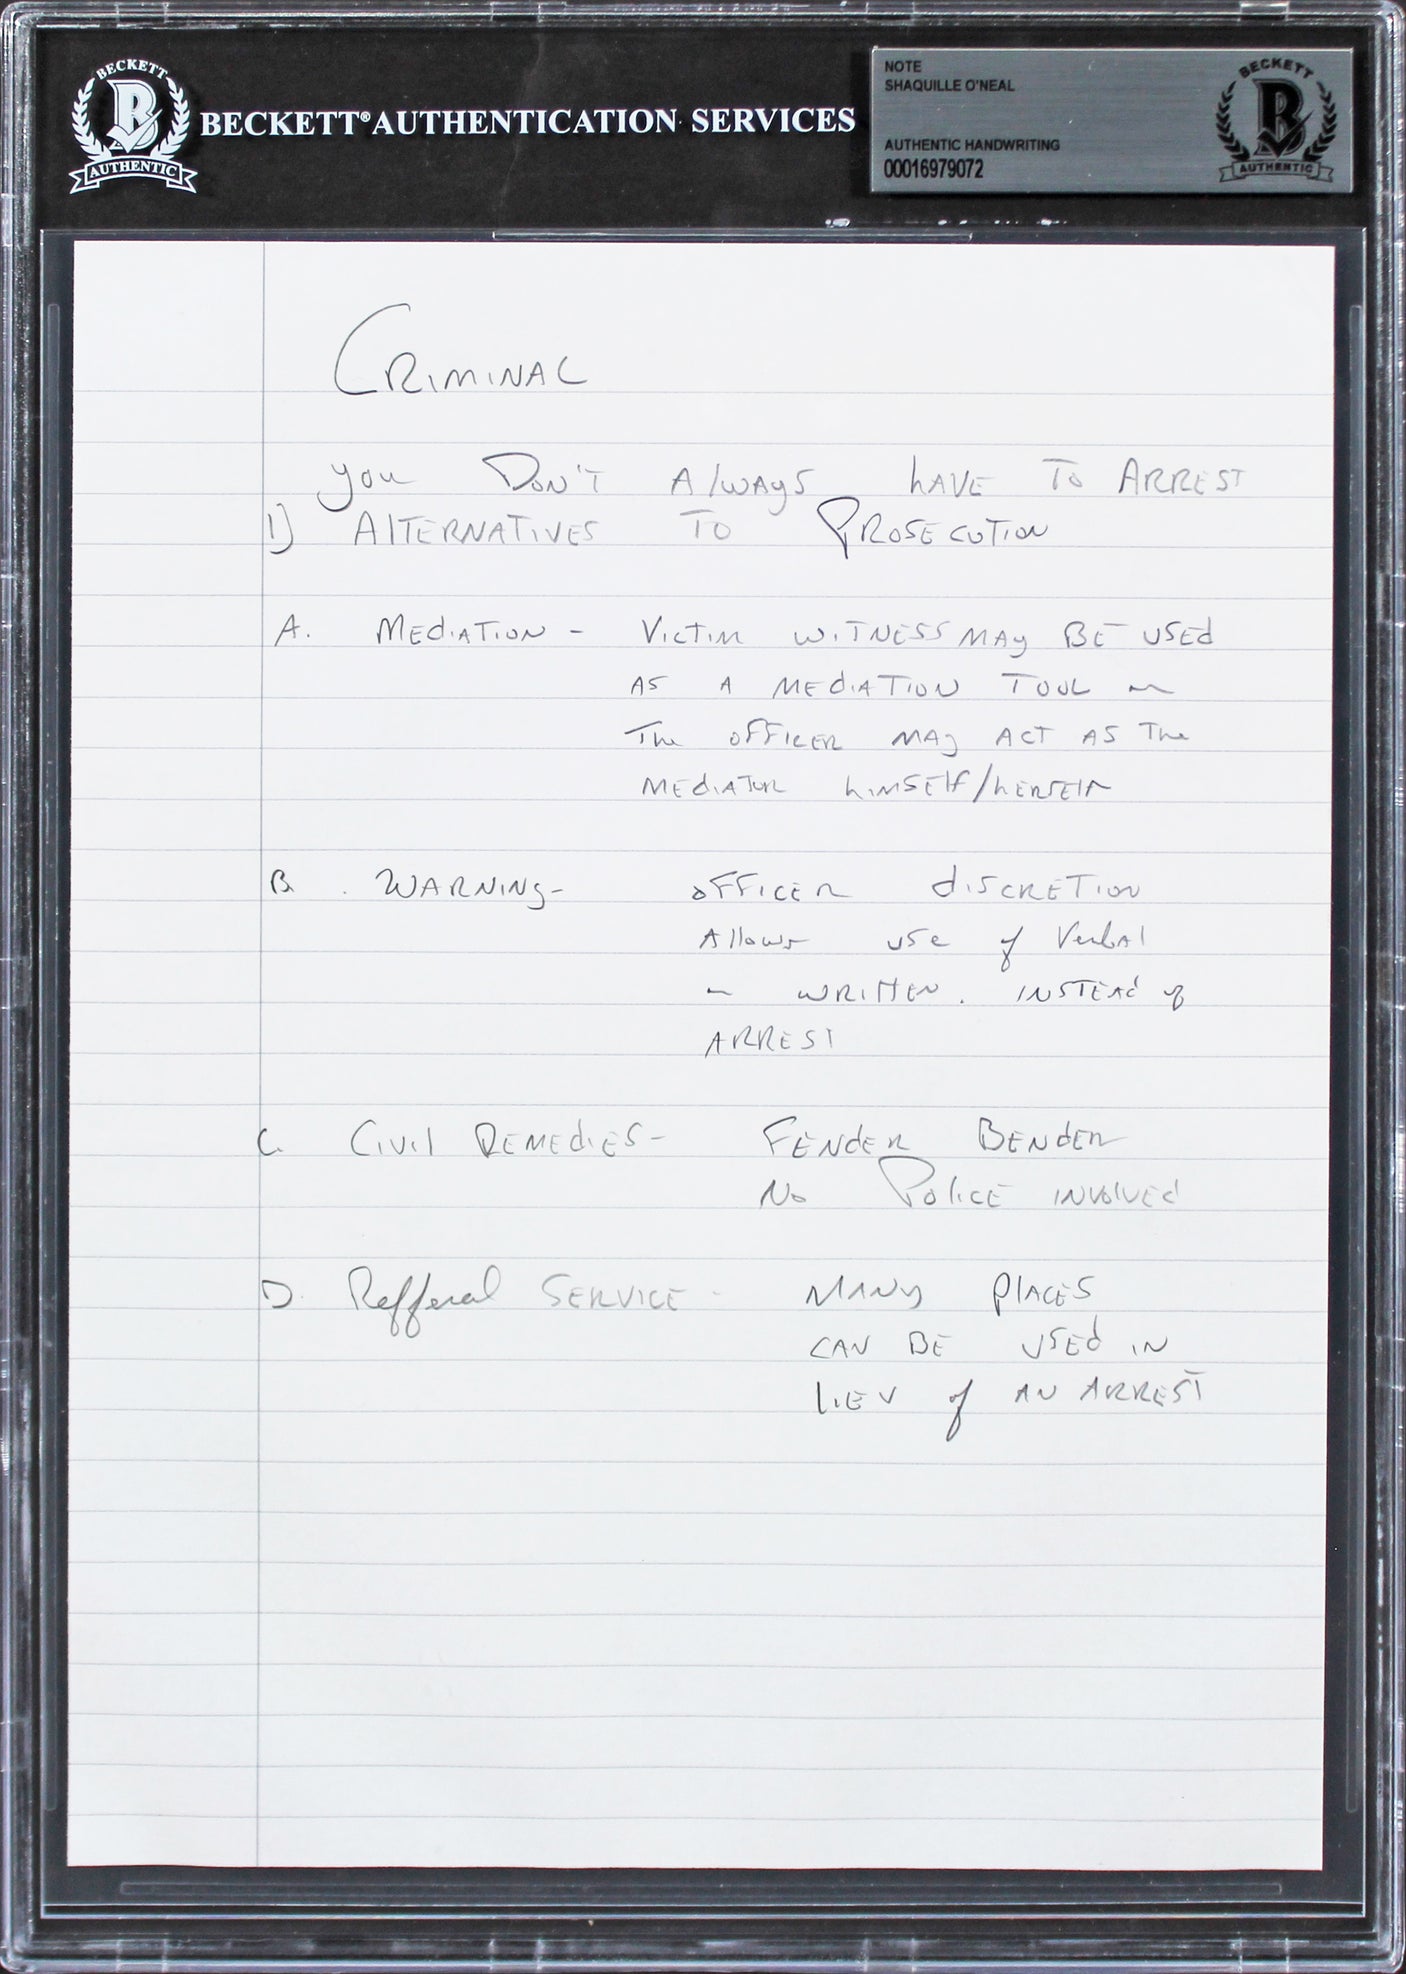 BECKETT
B
AUTHENTIC
BECKETT® AUTHENTICATION SERVICES
NOTE
SHAQUILLE O'NEAL
AUTHENTIC HANDWRITING
00016979072
BECKETT
B
AUTHENTIC
CRIMINAL
you DON'T AlWAyS hAVE TO ARREST
1) AlTERNATIVES TO PROSECUTION
A. MEdiATION - VICTIM WITNESS MAy BE USEd
AS A MEdiATION TOOL or
The OFFICER MAy ACT AS The
MEdiATOR hiMSElf/hERSElf
B. WARNING - OFFICER diSCRETION
Allows use of VerbAl
or WRITTEN. INSTEAd of
ARREST
C. CIVIl REMEdiES - FENdER BENdER
No PoliCE INVOlVEd
D. Refferal SERVICE - MANy PlACES
CAN BE USEd IN
liEU of AN ARREST